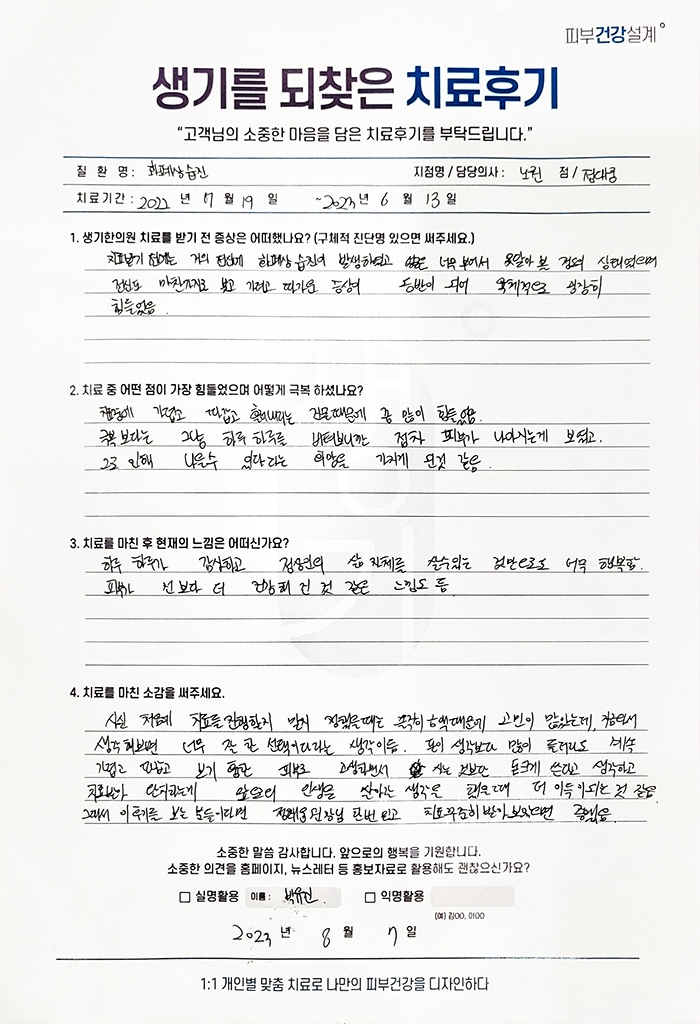 피부건강설계
생기를 되찾은 치료후기
“고객님의 소중한 마음을 담은 치료후기를 부탁드립니다.”
질 환 명 : 화폐상습진 지점명 / 담당의사 : 노원 점 / 정대웅
치료기간 : 2022 년 7 월 19 일 ~2023 년 6 월 13 일
1. 생기한의원 치료를 받기 전 증상은 어떠했나요? (구체적 진단명 있으면 써주세요.)
치료받기 전에는 거의 전신에 화폐상 습진이 발생하였고 너무 부어서 못알아 본 정도의 상태였으며
전신도 마찬가지로 붓고 가렵고 따가운 증상이 동반이 되어 육체적으로 굉장히
힘들었음.
2. 치료 중 어떤 점이 가장 힘들었으며 어떻게 극복 하셨나요?
가렵고 따갑고 흘러내리는 진물때문에 좀 많이 힘들었음.
극복보다는 그냥 하루 하루를 버텨보니까 점차 피부가 나아지는게 보였고.
그로 인해 나을수 있다라는 희망을 가지게 된것 같음.
3. 치료를 마친 후 현재의 느낌은 어떠신가요?
하루 하루가 감사하고 정상인의 삶 자체를 살수있는 것만으로도 너무 행복함.
피부가 전보다 더 건강해 진 것 같은 느낌도 듬.
4. 치료를 마친 소감을 써주세요.
사실 처음에 치료를 진행할지 말지 정했을때는 솔직히 금액때문에 고민이 많았는데, 지나서
생각해보면 너무 잘 한 선택이다라는 생각이듬. 돈이 생각보다 많이 들더라도 계속
가렵고 따갑고 보기 흉한 피부로 고생하면서 사는 것보단 돈크게 쓴다고 생각하고
치료받아 완치하는게 앞으로의 인생을 살아가는 생각은 했을때 더 이득이되는 것 같음.
그래서 이 후기를 보는 분들이라면 정대웅 원장님 한번 믿고 치료꾸준히 받아보셨으면 좋겠음.
소중한 말씀 감사합니다. 앞으로의 행복을 기원합니다.
소중한 의견을 홈페이지, 뉴스레터 등 홍보자료로 활용해도 괜찮으신가요?
□ 실명활용 이름 : 박유진 □ 익명활용
(예) 김OO, 이OO
2023 년 8 월 7 일
1:1 개인별 맞춤 치료로 나만의 피부건강을 디자인하다